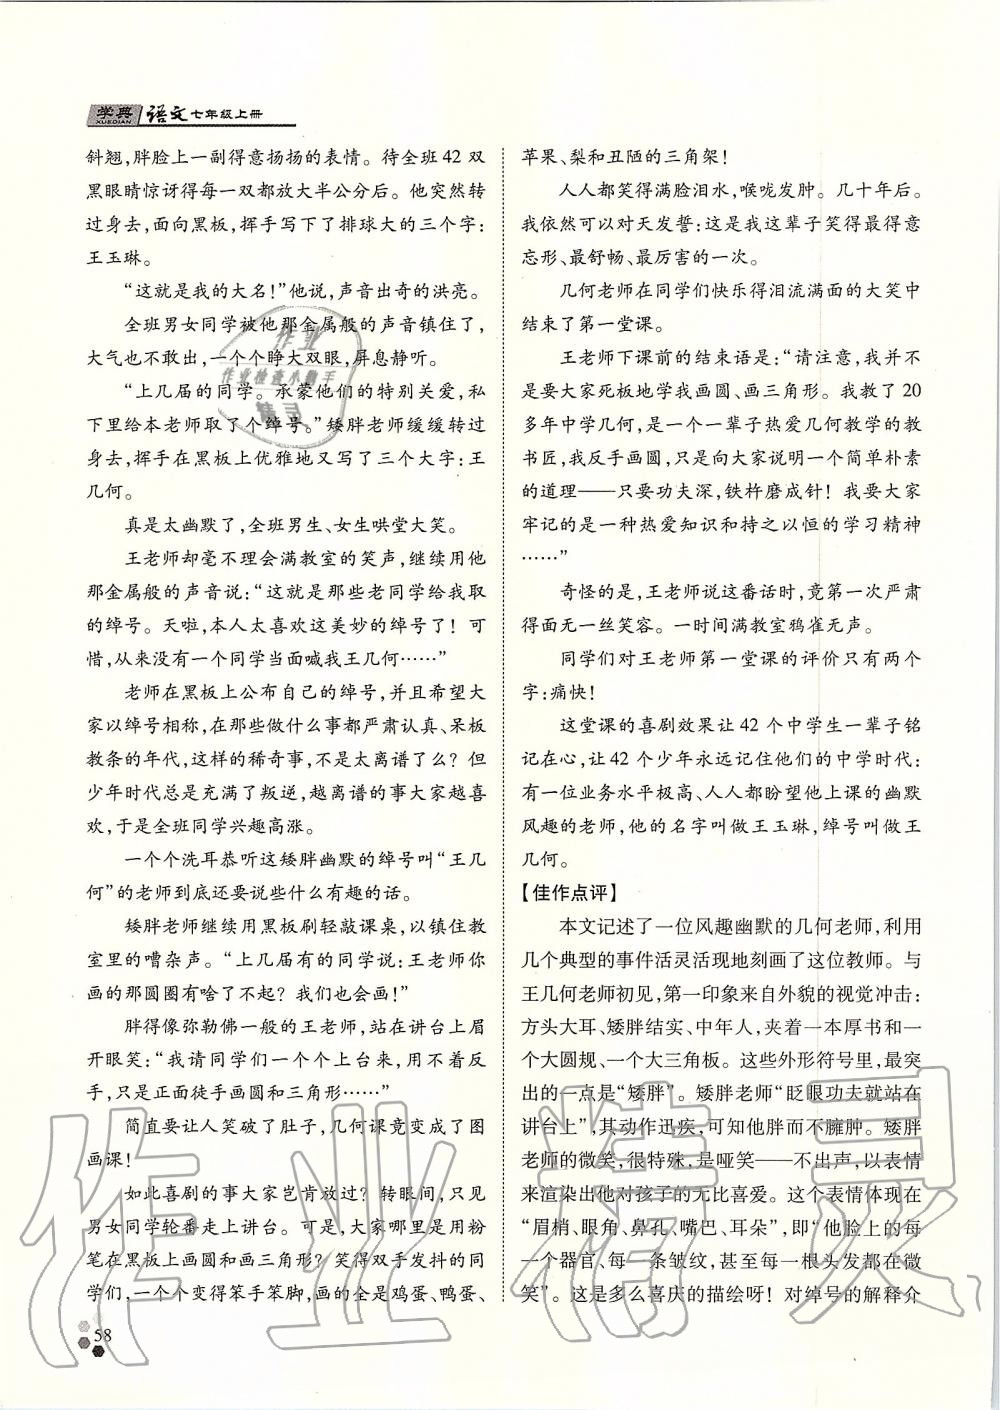 学典
XUEDIAN
语文七年级上册
斜翘,胖脸上一副得意扬扬的表情。待全班 42 双
黑眼睛惊讶得每一双都放大半公分后。他突然转
过身去,面向黑板,挥手写下了排球大的三个字:
王玉琳。
“这就是我的大名!”他说,声音出奇的洪亮。
全班男女同学被他那金属般的声音镇住了,
大气也不敢出,一个个睁大双眼,屏息静听。
“上几届的同学。承蒙他们的特别关爱,私
下里给本老师取了个绰号。”矮胖老师缓缓转过
身去,挥手在黑板上优雅地又写了三个大字:王
几何。
真是太幽默了,全班男生、女生哄堂大笑。
王老师却毫不理会满教室的笑声,继续用他
那金属般的声音说:“这就是那些老同学给我取
的绰号。天啦,本人太喜欢这美妙的绰号了! 可
惜,从来没有一个同学当面喊我王几何……”
老师在黑板上公布自己的绰号,并且希望大
家以绰号相称,在那些做什么事都严肃认真、呆板
教条的年代,这样的稀奇事,不是太离谱了么? 但
少年时代总是充满了叛逆,越离谱的事大家越喜
欢,于是全班同学兴趣高涨。
一个个洗耳恭听这矮胖幽默的绰号叫“王几
何”的老师到底还要说些什么有趣的话。
矮胖老师继续用黑板刷轻敲课桌,以镇住教
室里的嘈杂声。“上几届有的同学说:王老师你
画的那圆圈有啥了不起? 我也会画!”
胖得像弥勒佛一般的王老师,站在讲台上眉
开眼笑:“我请同学们一个个上台来,用不着反
手,只是正面徒手画圆和三角形……”
简直要让人笑破了肚子,几何课竟变成了图
画课!
如此喜剧的事大家岂肯放过? 转眼间,只见
男女同学轮番走上讲台。可是,大家哪里是用粉
笔在黑板上画圆和画三角形? 笑得双手发抖的同
学们,一个个变得笨手笨脚,画的全是鸡蛋、鸭蛋、
苹果、梨和丑陋的三角架!
人人都笑得满脸泪水,喉咙发肿。几十年后。
我依然可以对天发誓:这是我这辈子笑得最得意
忘形、最舒畅、最厉害的一次。
几何老师在同学们快乐得泪流满面的大笑中
结束了第一堂课。
王老师下课前的结束语是:“请注意,我并不
是要大家死板地学我画圆、画三角形。我教了 20
多年中学几何,是一个一辈子热爱几何教学的教
书匠,我反手画圆,只是向大家说明一个简单朴素
的道理——只要功夫深,铁杵磨成针! 我要大家
牢记的是一种热爱知识和持之以恒的学习精神
……”
奇怪的是,王老师说这番话时,竟第一次严肃
得面无一丝笑容。一时间满教室鸦雀无声。
同学们对王老师第一堂课的评价只有两个
字:痛快!
这堂课的喜剧效果让 42 个中学生一辈子铭
记在心,让 42 个少年永远记住他们的中学时代:
有一位业务水平极高、人人都盼望他上课的幽默
风趣的老师,他的名字叫做王玉琳,绰号叫做王
几何。
【佳作点评】
本文记述了一位风趣幽默的几何老师,利用
几个典型的事件活灵活现地刻画了这位教师。与
王几何老师初见,第一印象来自外貌的视觉冲击:
方头大耳、矮胖结实、中年人,夹着一本厚书和一
个大圆规、一个大三角板。这些外形符号里,最突
出的一点是“矮胖”。矮胖老师“眨眼功夫就站在
讲台上”,其动作迅疾,可知他胖而不臃肿。矮胖
老师的微笑,很特殊,是哑笑——不出声,以表情
来渲染出他对孩子的无比喜爱。这个表情体现在
“眉梢、眼角、鼻孔、嘴巴、耳朵”,即“他脸上的每
一个器官、每一条皱纹,甚至每一根头发都在微
笑”。这是多么喜庆的描绘呀! 对绰号的解释介
58
作业
作业检查小助手
精灵
作业精灵